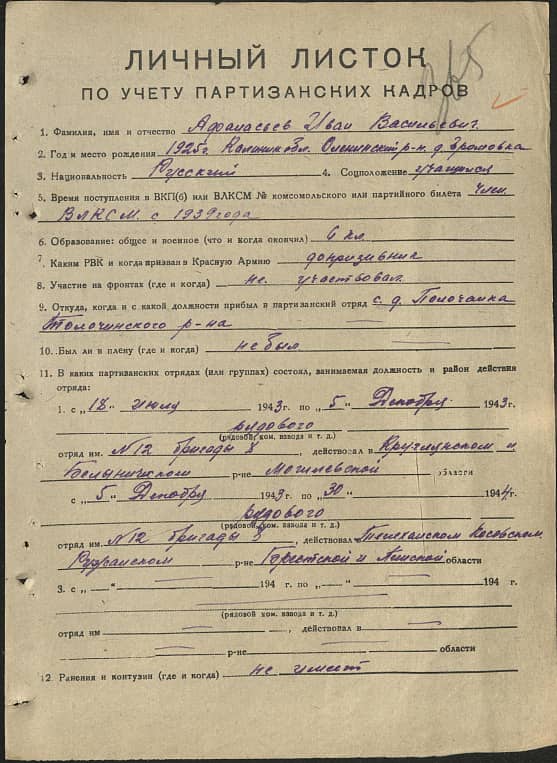 965
ЛИЧНЫЙ ЛИСТОК
ПО УЧЕТУ ПАРТИЗАНСКИХ КАДРОВ
1. Фамилия, имя и отчество Афанасьев Иван Васильевич.
2. Год и место рождения 1925г. Калининобл. Оленинский р-н. д.
3. Национальность Русский 4. Соцположение учащийся
5. Время поступления в ВКП(б) или ВЛКСМ № комсомольского или партийного билета Член
ВЛКСМ с 1939 года
6. Образование: общее и военное (что и когда окончил) 6 кл
7. Каким РВК и когда призван в Красную Армию допризывник
8. Участие на фронтах (где и когда) не участвовал
9. Откуда, когда и с какой должности прибыл в партизанский отряд с д.
Толочинского р-на
10. Был ли в плену (где и когда) не был
11. В каких партизанских отрядах (или группах) состоял, занимаемая должность и район действия
отряда:
1. с „18" июля 1943 г. по „5" Декабря 1943 г.
рядового
(рядовой ком. взвода и т. д.)
отряд им. №12 бригады 8, действовал в Круглянском и
Белыничском р-не Могилевской области
с „5" Декабря 1943 г. по „30" 1944 г.
рядового
(рядовой ком. взвода и т. д.)
отряд им. №12 бригады 8, действовал Телеханском Косовском
Ружанском р-не Брестской и Пинской области
3. с „—" 194 г. по „—" 194 г.
(рядовой ком. взвода и т. д.)
отряд им —, действовал в
р-не области
12. Ранения и контузии (где и когда) не имеет